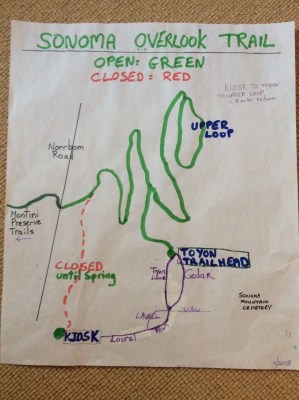 SONOMA OVERLOOK TRAIL
OPEN: GREEN
CLOSED: RED
KIOSK TO TOYON
TO UPPER LOOP,
UPPER
LOOP
Norrbom
Road
Montini
Preserve
Trails
TOYON
TRAILHEAD
Cedar
CLOSED
until Spring
SONOMA
MOUNTAIN
CEMETERY
LAUREL
KIOSK
Laurel